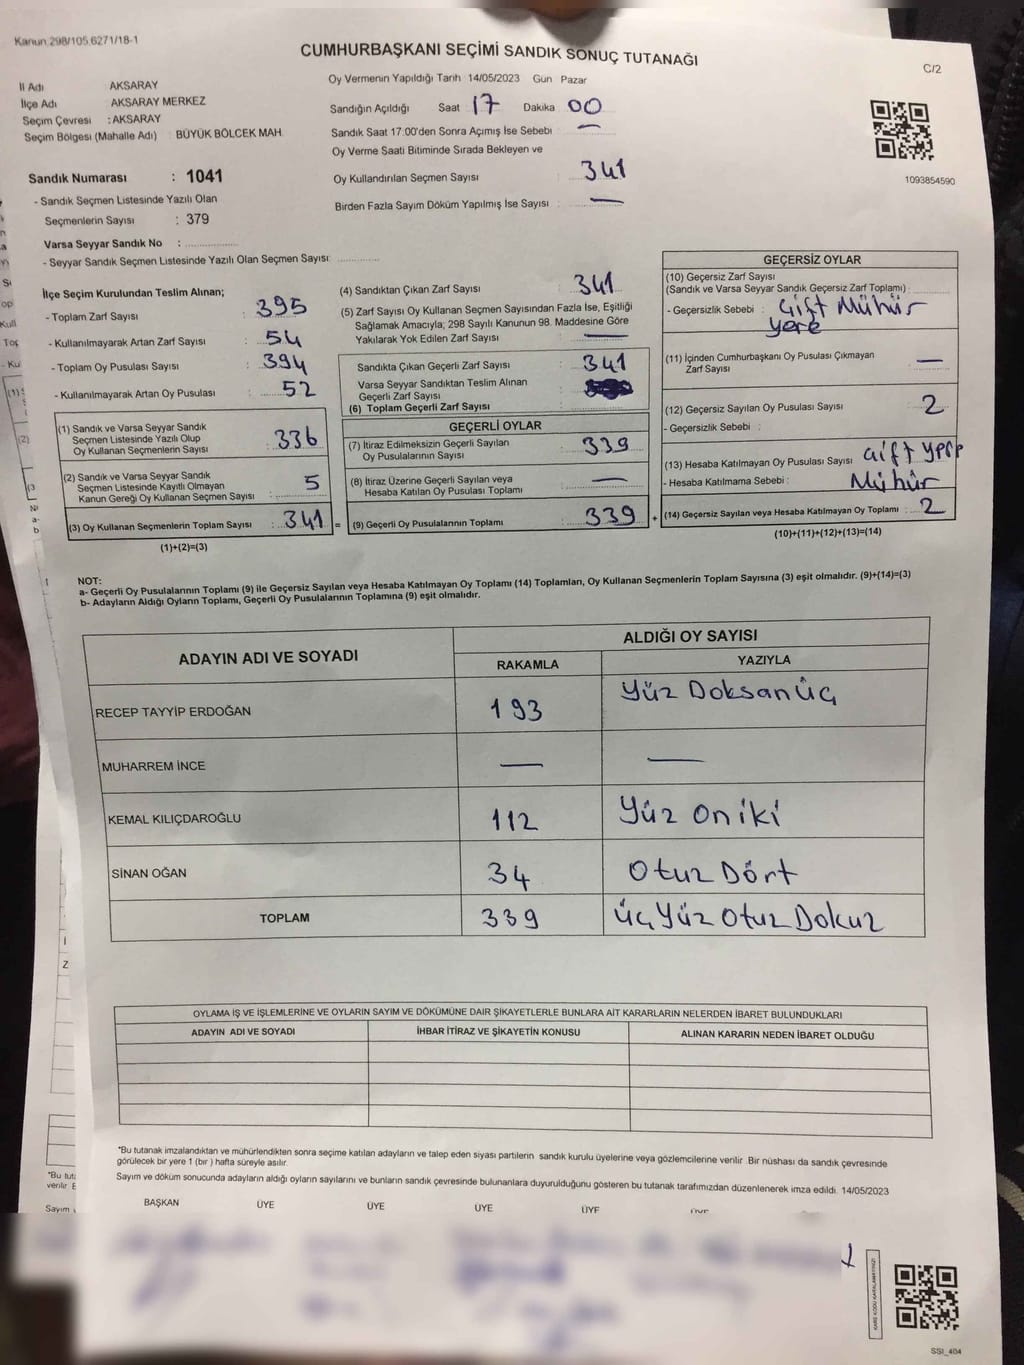 Kanun 298/105.6271/18-1
CUMHURBAŞKANI SEÇİMİ SANDIK SONUÇ TUTANAĞI
C/2
İl Adı AKSARAY
İlçe Adı AKSARAY MERKEZ
Seçim Çevresi : AKSARAY
Seçim Bölgesi (Mahalle Adı) : BÜYÜK BÖLCEK MAH.
Sandık Numarası : 1041
- Sandık Seçmen Listesinde Yazılı Olan
Seçmenlerin Sayısı : 379
Varsa Seyyar Sandık No :
- Seyyar Sandık Seçmen Listesinde Yazılı Olan Seçmen Sayısı:
Oy Vermenin Yapıldığı Tarih 14/05/2023 Gün Pazar
Sandığın Açıldığı Saat 17 Dakika 00
Sandık Saat 17:00'den Sonra Açılmış İse Sebebi : —
Oy Verme Saati Bitiminde Sırada Bekleyen ve
Oy Kullandırılan Seçmen Sayısı : 341
Birden Fazla Sayım Döküm Yapılmış İse Sayısı : —
1093854590
İlçe Seçim Kurulundan Teslim Alınan;
- Toplam Zarf Sayısı : 395
- Kullanılmayarak Artan Zarf Sayısı : 54
- Toplam Oy Pusulası Sayısı : 394
- Kullanılmayarak Artan Oy Pusulası : 52
(1) Sandık ve Varsa Seyyar Sandık
Seçmen Listesinde Yazılı Olup
Oy Kullanan Seçmenlerin Sayısı : 336
(2) Sandık ve Varsa Seyyar Sandık
Seçmen Listesinde Kayıtlı Olmayan
Kanun Gereği Oy Kullanan Seçmen Sayısı : 5
(3) Oy Kullanan Seçmenlerin Toplam Sayısı : 341 =
(1)+(2)=(3)
(4) Sandıktan Çıkan Zarf Sayısı : 341
(5) Zarf Sayısı Oy Kullanan Seçmen Sayısından Fazla İse, Eşitliği
Sağlamak Amacıyla; 298 Sayılı Kanunun 98. Maddesine Göre
Yakılarak Yok Edilen Zarf Sayısı : —
Sandıkta Çıkan Geçerli Zarf Sayısı : 341
Varsa Seyyar Sandıktan Teslim Alınan
Geçerli Zarf Sayısı :
(6) Toplam Geçerli Zarf Sayısı
GEÇERLİ OYLAR
(7) İtiraz Edilmeksizin Geçerli Sayılan
Oy Pusulalarının Sayısı : 339
(8) İtiraz Üzerine Geçerli Sayılan veya
Hesaba Katılan Oy Pusulası Toplamı : —
(9) Geçerli Oy Pusulalarının Toplamı : 339 +
GEÇERSİZ OYLAR
(10) Geçersiz Zarf Sayısı
(Sandık ve Varsa Seyyar Sandık Geçersiz Zarf Toplamı) :
- Geçersizlik Sebebi : Çift Mühür
yere
(11) İçinden Cumhurbaşkanı Oy Pusulası Çıkmayan
Zarf Sayısı : —
(12) Geçersiz Sayılan Oy Pusulası Sayısı : 2
- Geçersizlik Sebebi :
(13) Hesaba Katılmayan Oy Pusulası Sayısı : Çift
- Hesaba Katılmama Sebebi : Mühür
(14) Geçersiz Sayılan veya Hesaba Katılmayan Oy Toplamı : 2
(10)+(11)+(12)+(13)=(14)
NOT:
a- Geçerli Oy Pusulalarının Toplamı (9) ile Geçersiz Sayılan veya Hesaba Katılmayan Oy Toplamı (14) Toplamları, Oy Kullanan Seçmenlerin Toplam Sayısına (3) eşit olmalıdır. (9)+(14)=(3)
b- Adayların Aldığı Oyların Toplamı, Geçerli Oy Pusulalarının Toplamına (9) eşit olmalıdır.
ADAYIN ADI VE SOYADI ALDIĞI OY SAYISI
RAKAMLA YAZIYLA
RECEP TAYYİP ERDOĞAN 193 Yüz Doksanüç
MUHARREM İNCE — —
KEMAL KILIÇDAROĞLU 112 Yüz oniki
SİNAN OĞAN 34 Otuz Dört
TOPLAM 339 üç Yüz Otuz Dokuz
OYLAMA İŞ VE İŞLEMLERİNE VE OYLARIN SAYIM VE DÖKÜMÜNE DAİR ŞİKAYETLERLE BUNLARA AİT KARARLARIN NELERDEN İBARET BULUNDUKLARI
ADAYIN ADI VE SOYADI İHBAR İTİRAZ VE ŞİKAYETİN KONUSU ALINAN KARARIN NEDEN İBARET OLDUĞU
*Bu tutanak imzalandıktan ve mühürlendikten sonra seçime katılan adayların ve talep eden siyasi partilerin sandık kurulu üyelerine veya gözlemcilerine verilir. Bir nüshası da sandık çevresinde
görülecek bir yere 1 (bir ) hafta süreyle asılır.
Sayım ve döküm sonucunda adayların aldığı oyların sayılarını ve bunların sandık çevresinde bulunanlara duyurulduğunu gösteren bu tutanak tarafımızdan düzenlenerek imza edildi. 14/05/2023
BAŞKAN ÜYE ÜYE ÜYE ÜYE ÜYE
KARE KODU KARALAMAYINIZ!
SSI_404